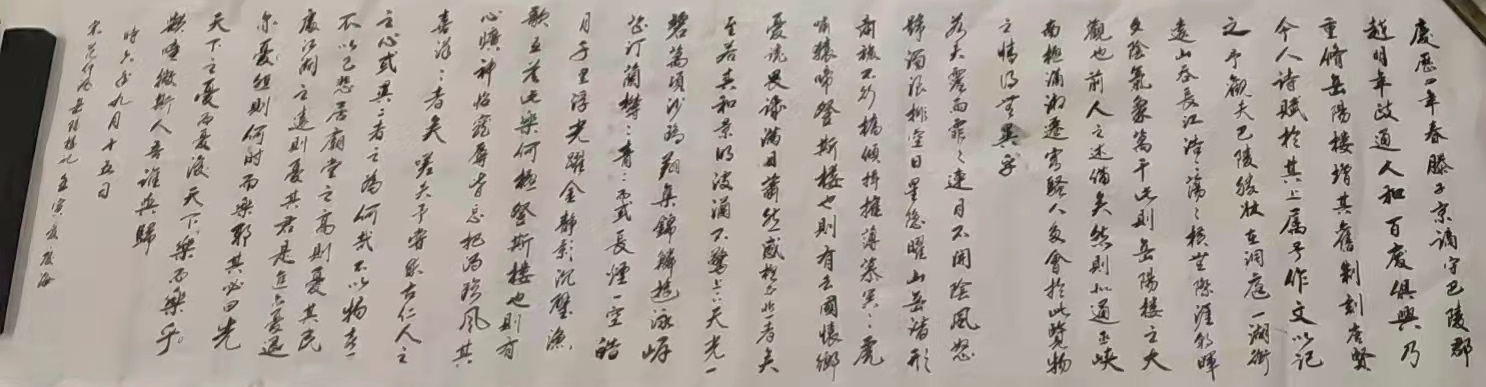 慶歷四年春滕子京謫守巴陵郡
越明年政通人和百廢俱興乃
重脩岳陽樓增其舊制刻唐賢
今人詩賦於其上属予作文以記
之予觀夫巴陵勝狀在洞庭一湖銜
遠山吞長江浩浩蕩蕩橫無際涯朝暉
夕陰氣象萬千此則岳陽樓之大
觀也前人之述備矣然則北通巫峽
南極瀟湘遷客騷人多會於此覽物
之情得無異乎
若夫霪雨霏霏連月不開陰風怒
號濁浪排空日星隱曜山岳潜形
商旅不行檣傾楫摧薄暮冥冥虎
嘯猿啼登斯樓也則有去國懷鄉
憂讒畏譏滿目蕭然感極而悲者矣
至若春和景明波瀾不驚上下天光一
碧萬頃沙鷗翔集錦鱗游泳岸
芷汀蘭鬱鬱青青而或長煙一空皓
月千里浮光躍金静影沉璧漁
歌互答此樂何極登斯樓也則有
心曠神怡寵辱皆忘把酒臨風其
喜洋洋者矣 嗟夫予嘗求古仁人之
之心或異二者之為何哉不以物喜
不以己悲居廟堂之高則憂其民
處江湖之遠則憂其君是進亦憂退
亦憂然則何時而樂耶其必曰先
天下之憂而憂後天下之樂而樂乎
噫微斯人吾誰與歸
時六年九月十五日
宋范仲淹岳陽樓記